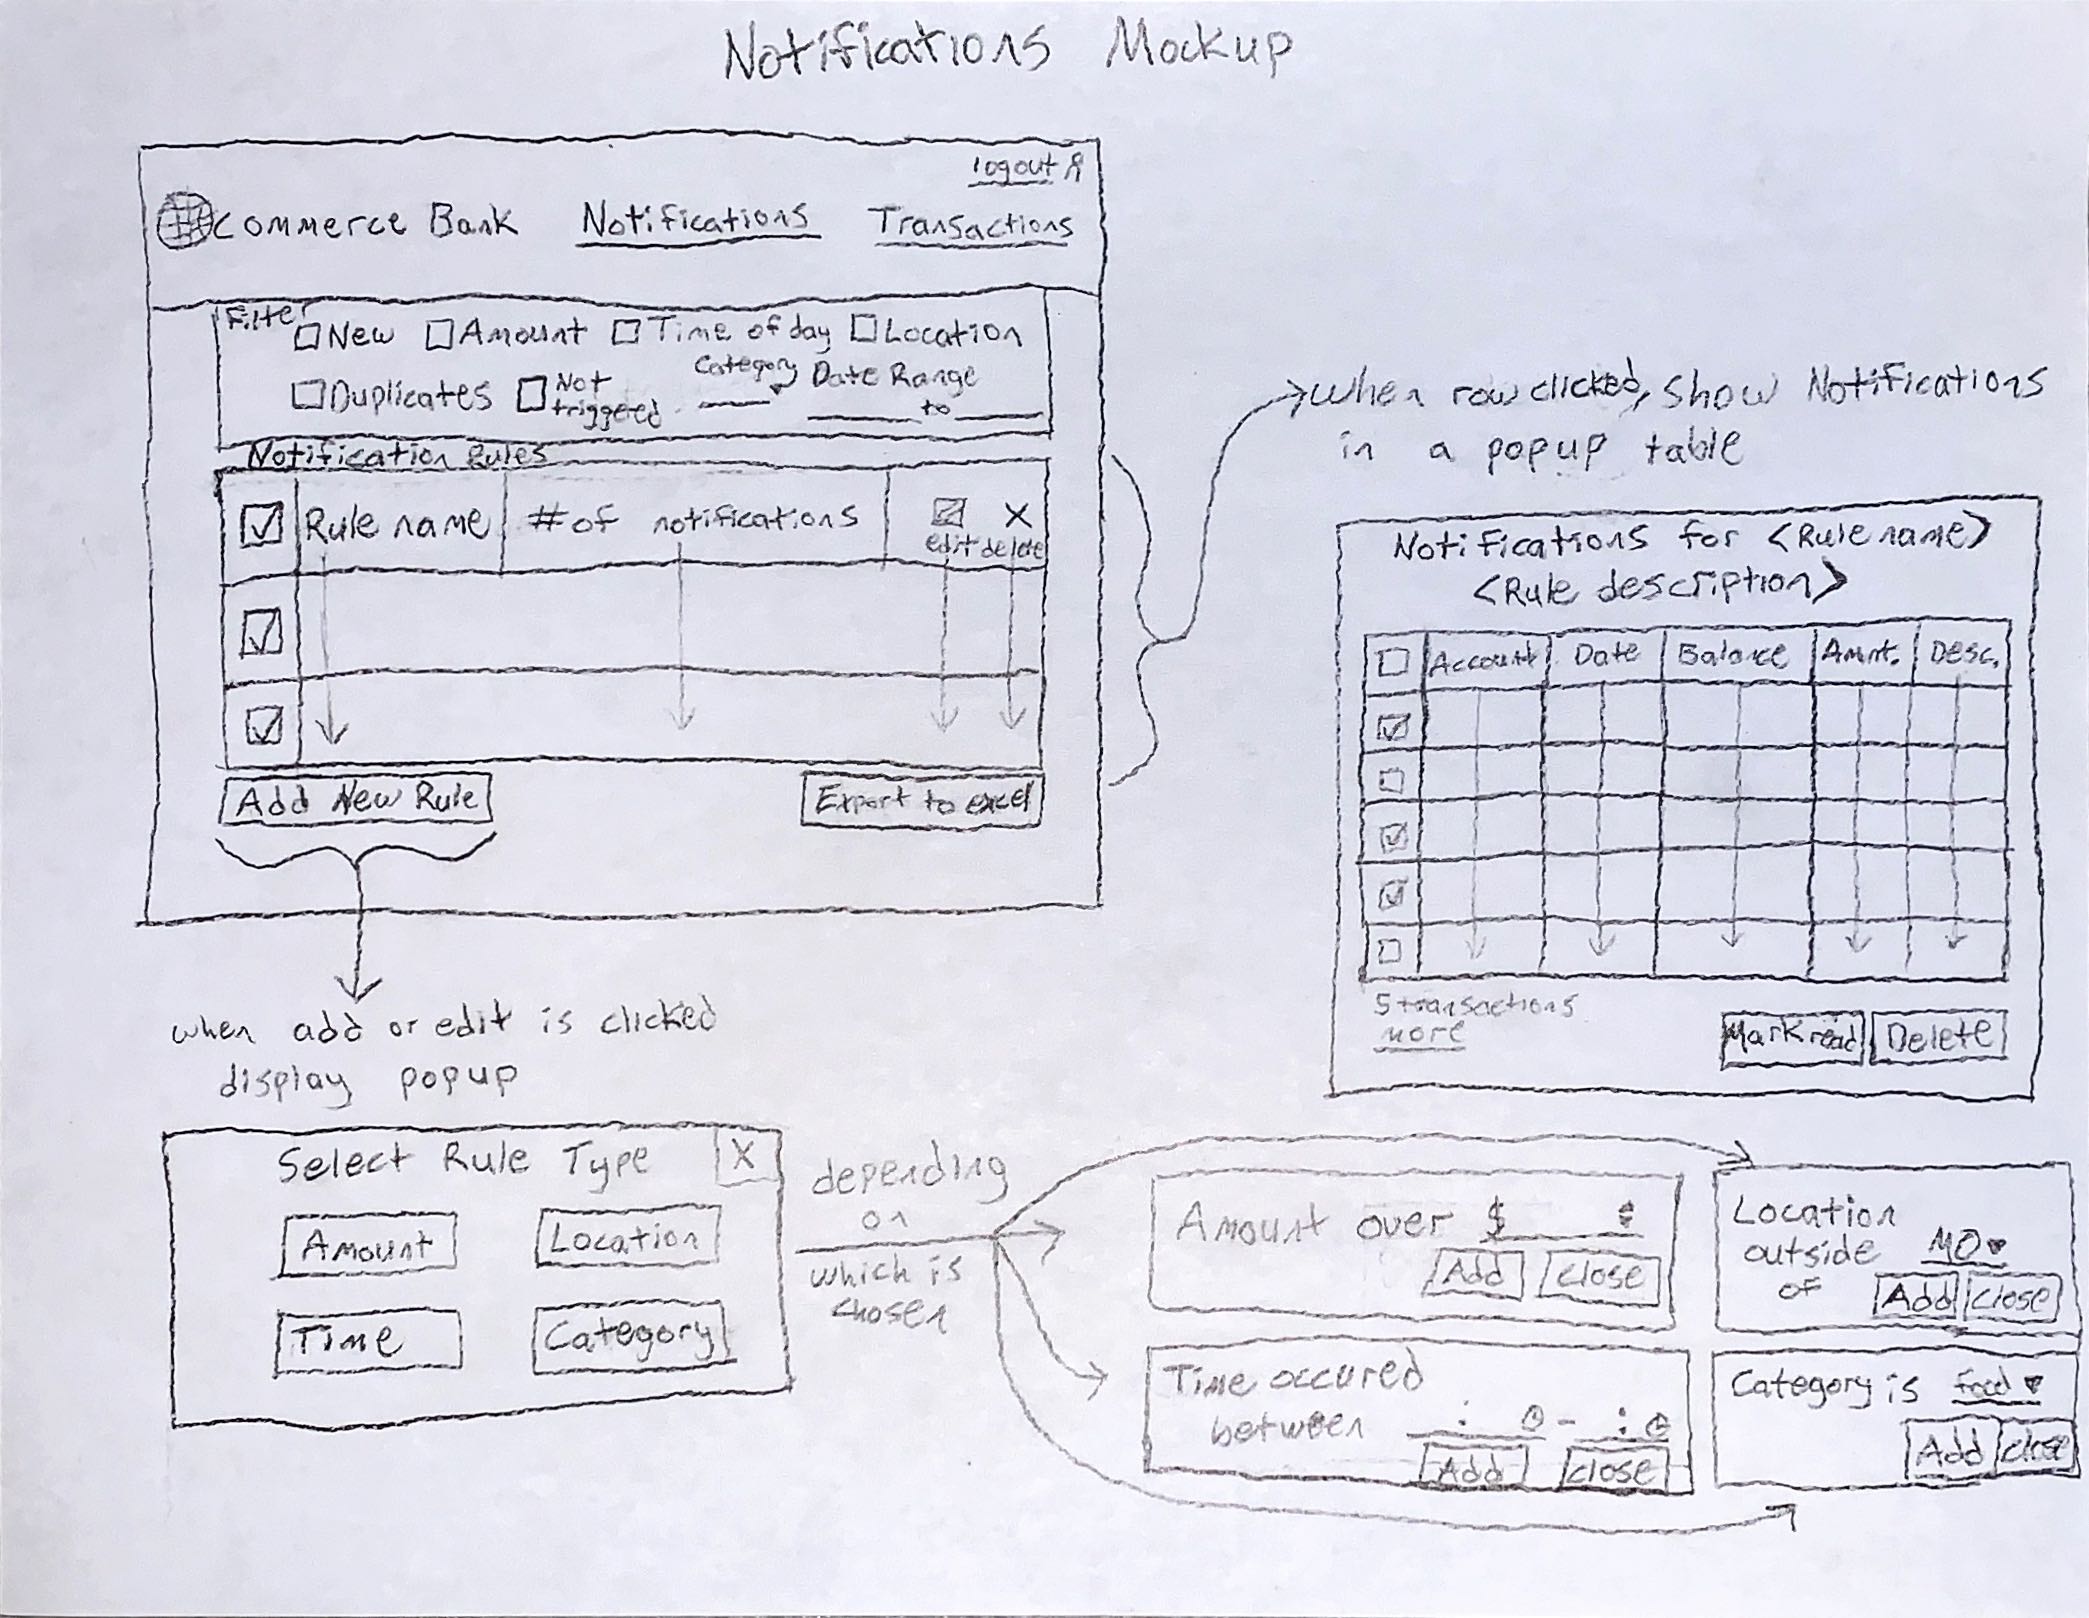 Notifications Mockup
logout
Commerce Bank Notifications Transactions
Filter
New Amount Time of day Location
Duplicates Not triggered Category Date Range
to
Notification Rules
Rule name # of notifications edit delete
Add New Rule Export to excel
when row clicked, show Notifications
in a popup table
Notifications for <Rule name>
<Rule description>
Account Date Balance Amnt. Desc.
5 transactions
more
Mark read Delete
when add or edit is clicked
display popup
Select Rule Type X
Amount Location
Time Category
depending
on
which is
chosen
Amount over $
Add Close
Location
outside MO
of Add Close
Time occured
between : - :
Add Close
Category is food
Add Close